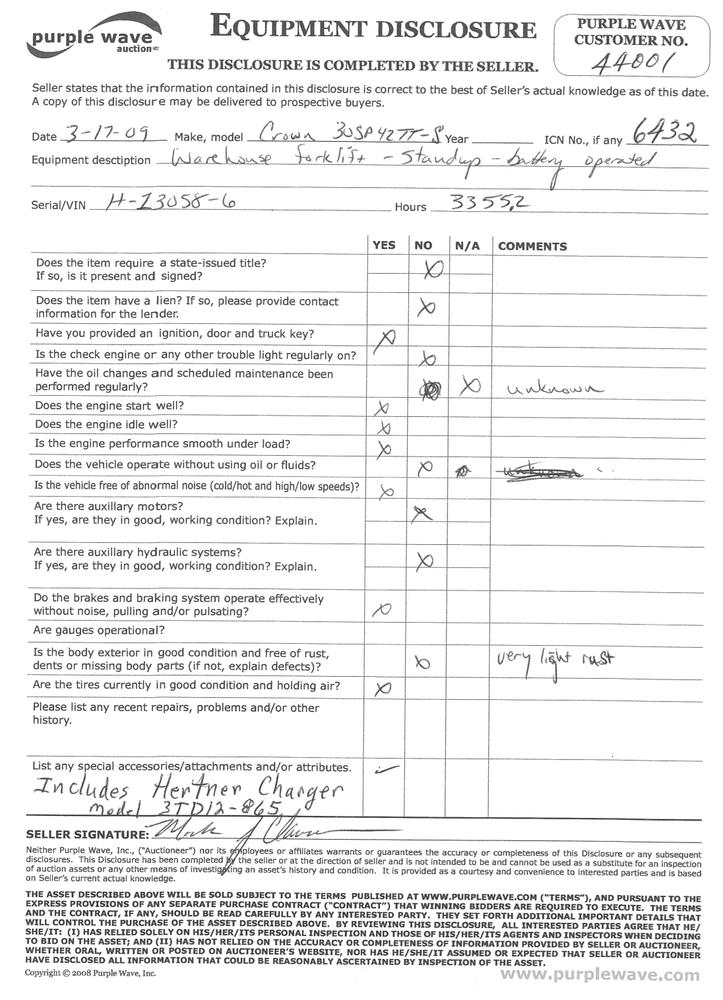 purple wave
auction
EQUIPMENT DISCLOSURE
THIS DISCLOSURE IS COMPLETED BY THE SELLER.
PURPLE WAVE
CUSTOMER NO.
44001
Seller states that the information contained in this disclosure is correct to the best of Seller's actual knowledge as of this date.
A copy of this disclosure may be delivered to prospective buyers.
Date 3-17-09 Make, model Crown 30SP42TT-S Year ICN No., if any 6432
Equipment desctiption Warehouse forklift - Standup - battery operated
Serial/VIN H-13058-6 Hours 3355.2
YES NO N/A COMMENTS
Does the item require a state-issued title?
If so, is it present and signed? X
Does the item have a lien? If so, please provide contact
information for the lender. X
Have you provided an ignition, door and truck key? X
Is the check engine or any other trouble light regularly on? X
Have the oil changes and scheduled maintenance been
performed regularly? X unknown
Does the engine start well? X
Does the engine idle well? X
Is the engine performance smooth under load? X
Does the vehicle operate without using oil or fluids? X
Is the vehicle free of abnormal noise (cold/hot and high/low speeds)? X
Are there auxillary motors?
If yes, are they in good, working condition? Explain. X
Are there auxillary hydraulic systems?
If yes, are they in good, working condition? Explain. X
Do the brakes and braking system operate effectively
without noise, pulling and/or pulsating? X
Are gauges operational?
Is the body exterior in good condition and free of rust,
dents or missing body parts (if not, explain defects)? X very light rust
Are the tires currently in good condition and holding air? X
Please list any recent repairs, problems and/or other
history.
List any special accessories/attachments and/or attributes. ✓
Includes Hertner Charger
model 3TD12-865
SELLER SIGNATURE: Mark J
Neither Purple Wave, Inc., ("Auctioneer") nor its employees or affiliates warrants or guarantees the accuracy or completeness of this Disclosure or any subsequent
disclosures. This Disclosure has been completed by the seller or at the direction of seller and is not intended to be and cannot be used as a substitute for an inspection
of auction assets or any other means of investigating an asset's history and condition. It is provided as a courtesy and convenience to interested parties and is based
on Seller's current actual knowledge.
THE ASSET DESCRIBED ABOVE WILL BE SOLD SUBJECT TO THE TERMS PUBLISHED AT WWW.PURPLEWAVE.COM ("TERMS"), AND PURSUANT TO THE
EXPRESS PROVISIONS OF ANY SEPARATE PURCHASE CONTRACT ("CONTRACT") THAT WINNING BIDDERS ARE REQUIRED TO EXECUTE. THE TERMS
AND THE CONTRACT, IF ANY, SHOULD BE READ CAREFULLY BY ANY INTERESTED PARTY. THEY SET FORTH ADDITIONAL IMPORTANT DETAILS THAT
WILL CONTROL THE PURCHASE OF THE ASSET DESCRIBED ABOVE. BY REVIEWING THIS DISCLOSURE, ALL INTERESTED PARTIES AGREE THAT HE/
SHE/IT: (I) HAS RELIED SOLELY ON HIS/HER/ITS PERSONAL INSPECTION AND THOSE OF HIS/HER/ITS AGENTS AND INSPECTORS WHEN DECIDING
TO BID ON THE ASSET; AND (II) HAS NOT RELIED ON THE ACCURACY OR COMPLETENESS OF INFORMATION PROVIDED BY SELLER OR AUCTIONEER,
WHETHER ORAL, WRITTEN OR POSTED ON AUCTIONEER'S WEBSITE, NOR HAS HE/SHE/IT ASSUMED OR EXPECTED THAT SELLER OR AUCTIONEER
HAVE DISCLOSED ALL INFORMATION THAT COULD BE REASONABLY ASCERTAINED BY INSPECTION OF THE ASSET.
Copyright © 2008 Purple Wave, Inc.
www.purplewave.com